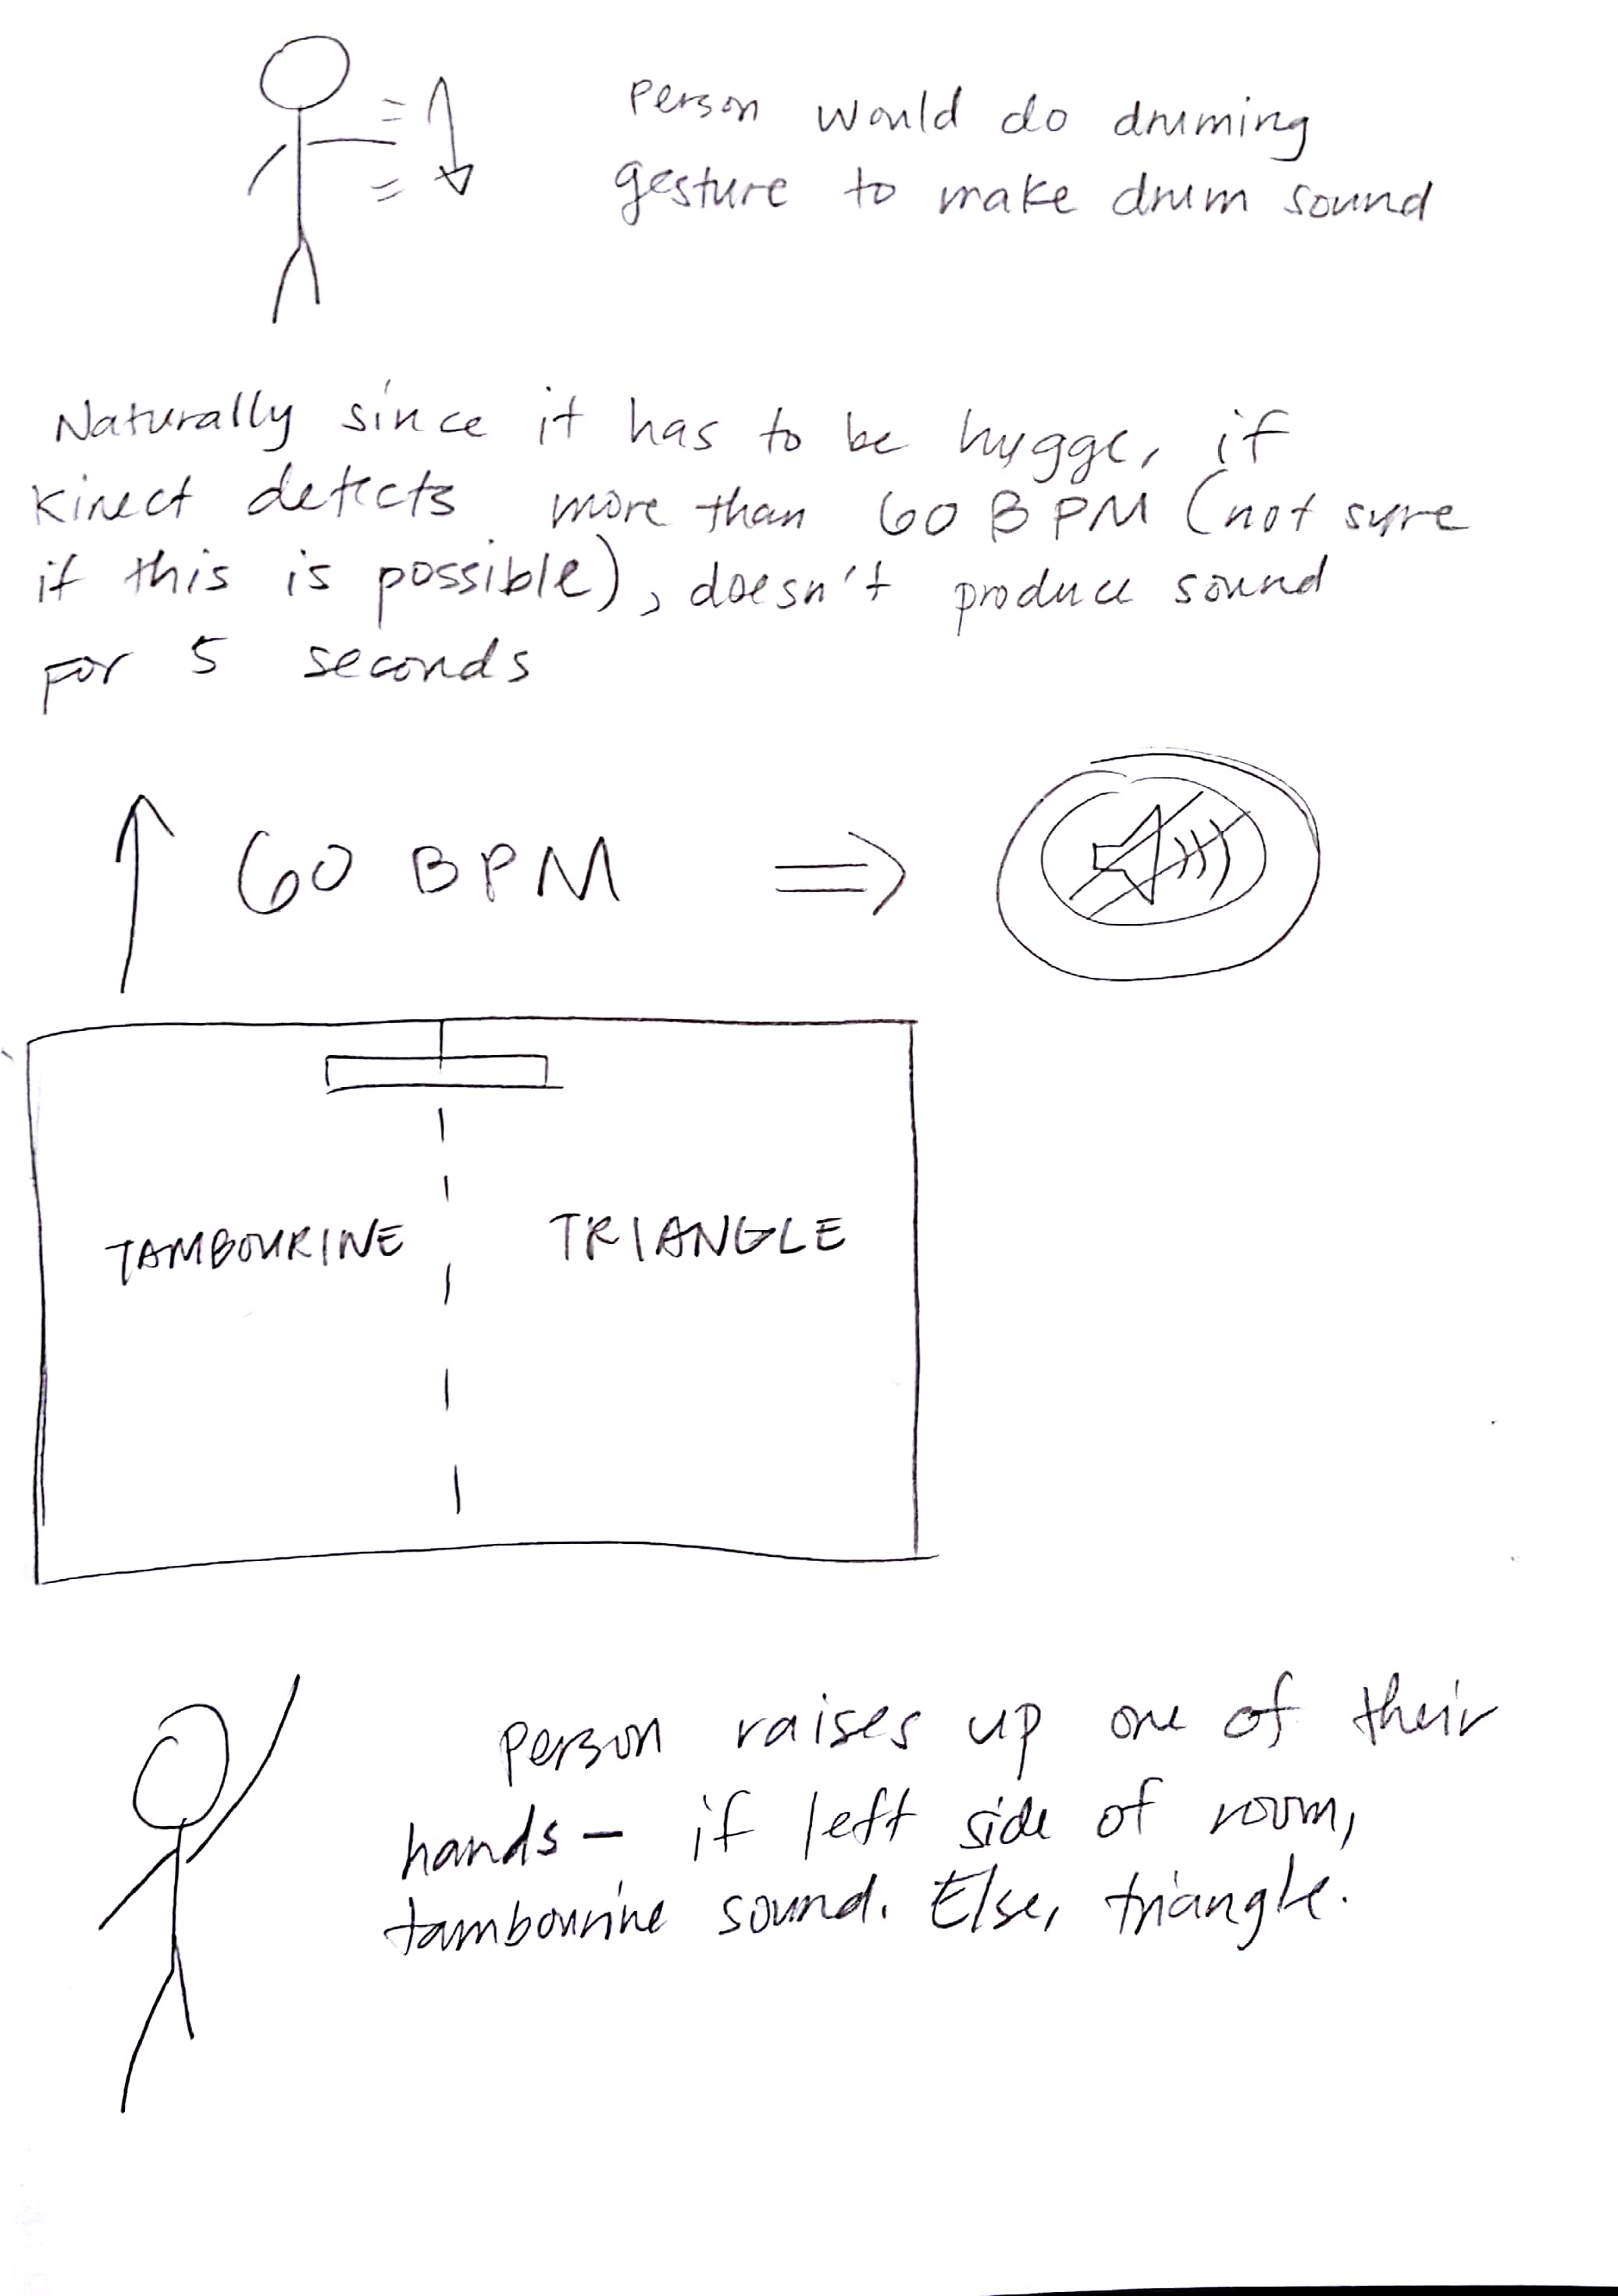 Person would do druming
gesture to make drum sound
Naturally since it has to be hygge, if
kinect detects more than 60 BPM (not sure
if this is possible), doesn't produce sound
for 5 seconds
60 BPM
TAMBOURINE
TRIANGLE
person raises up one of their
hands - if left side of room,
tambourine sound. Else, triangle.